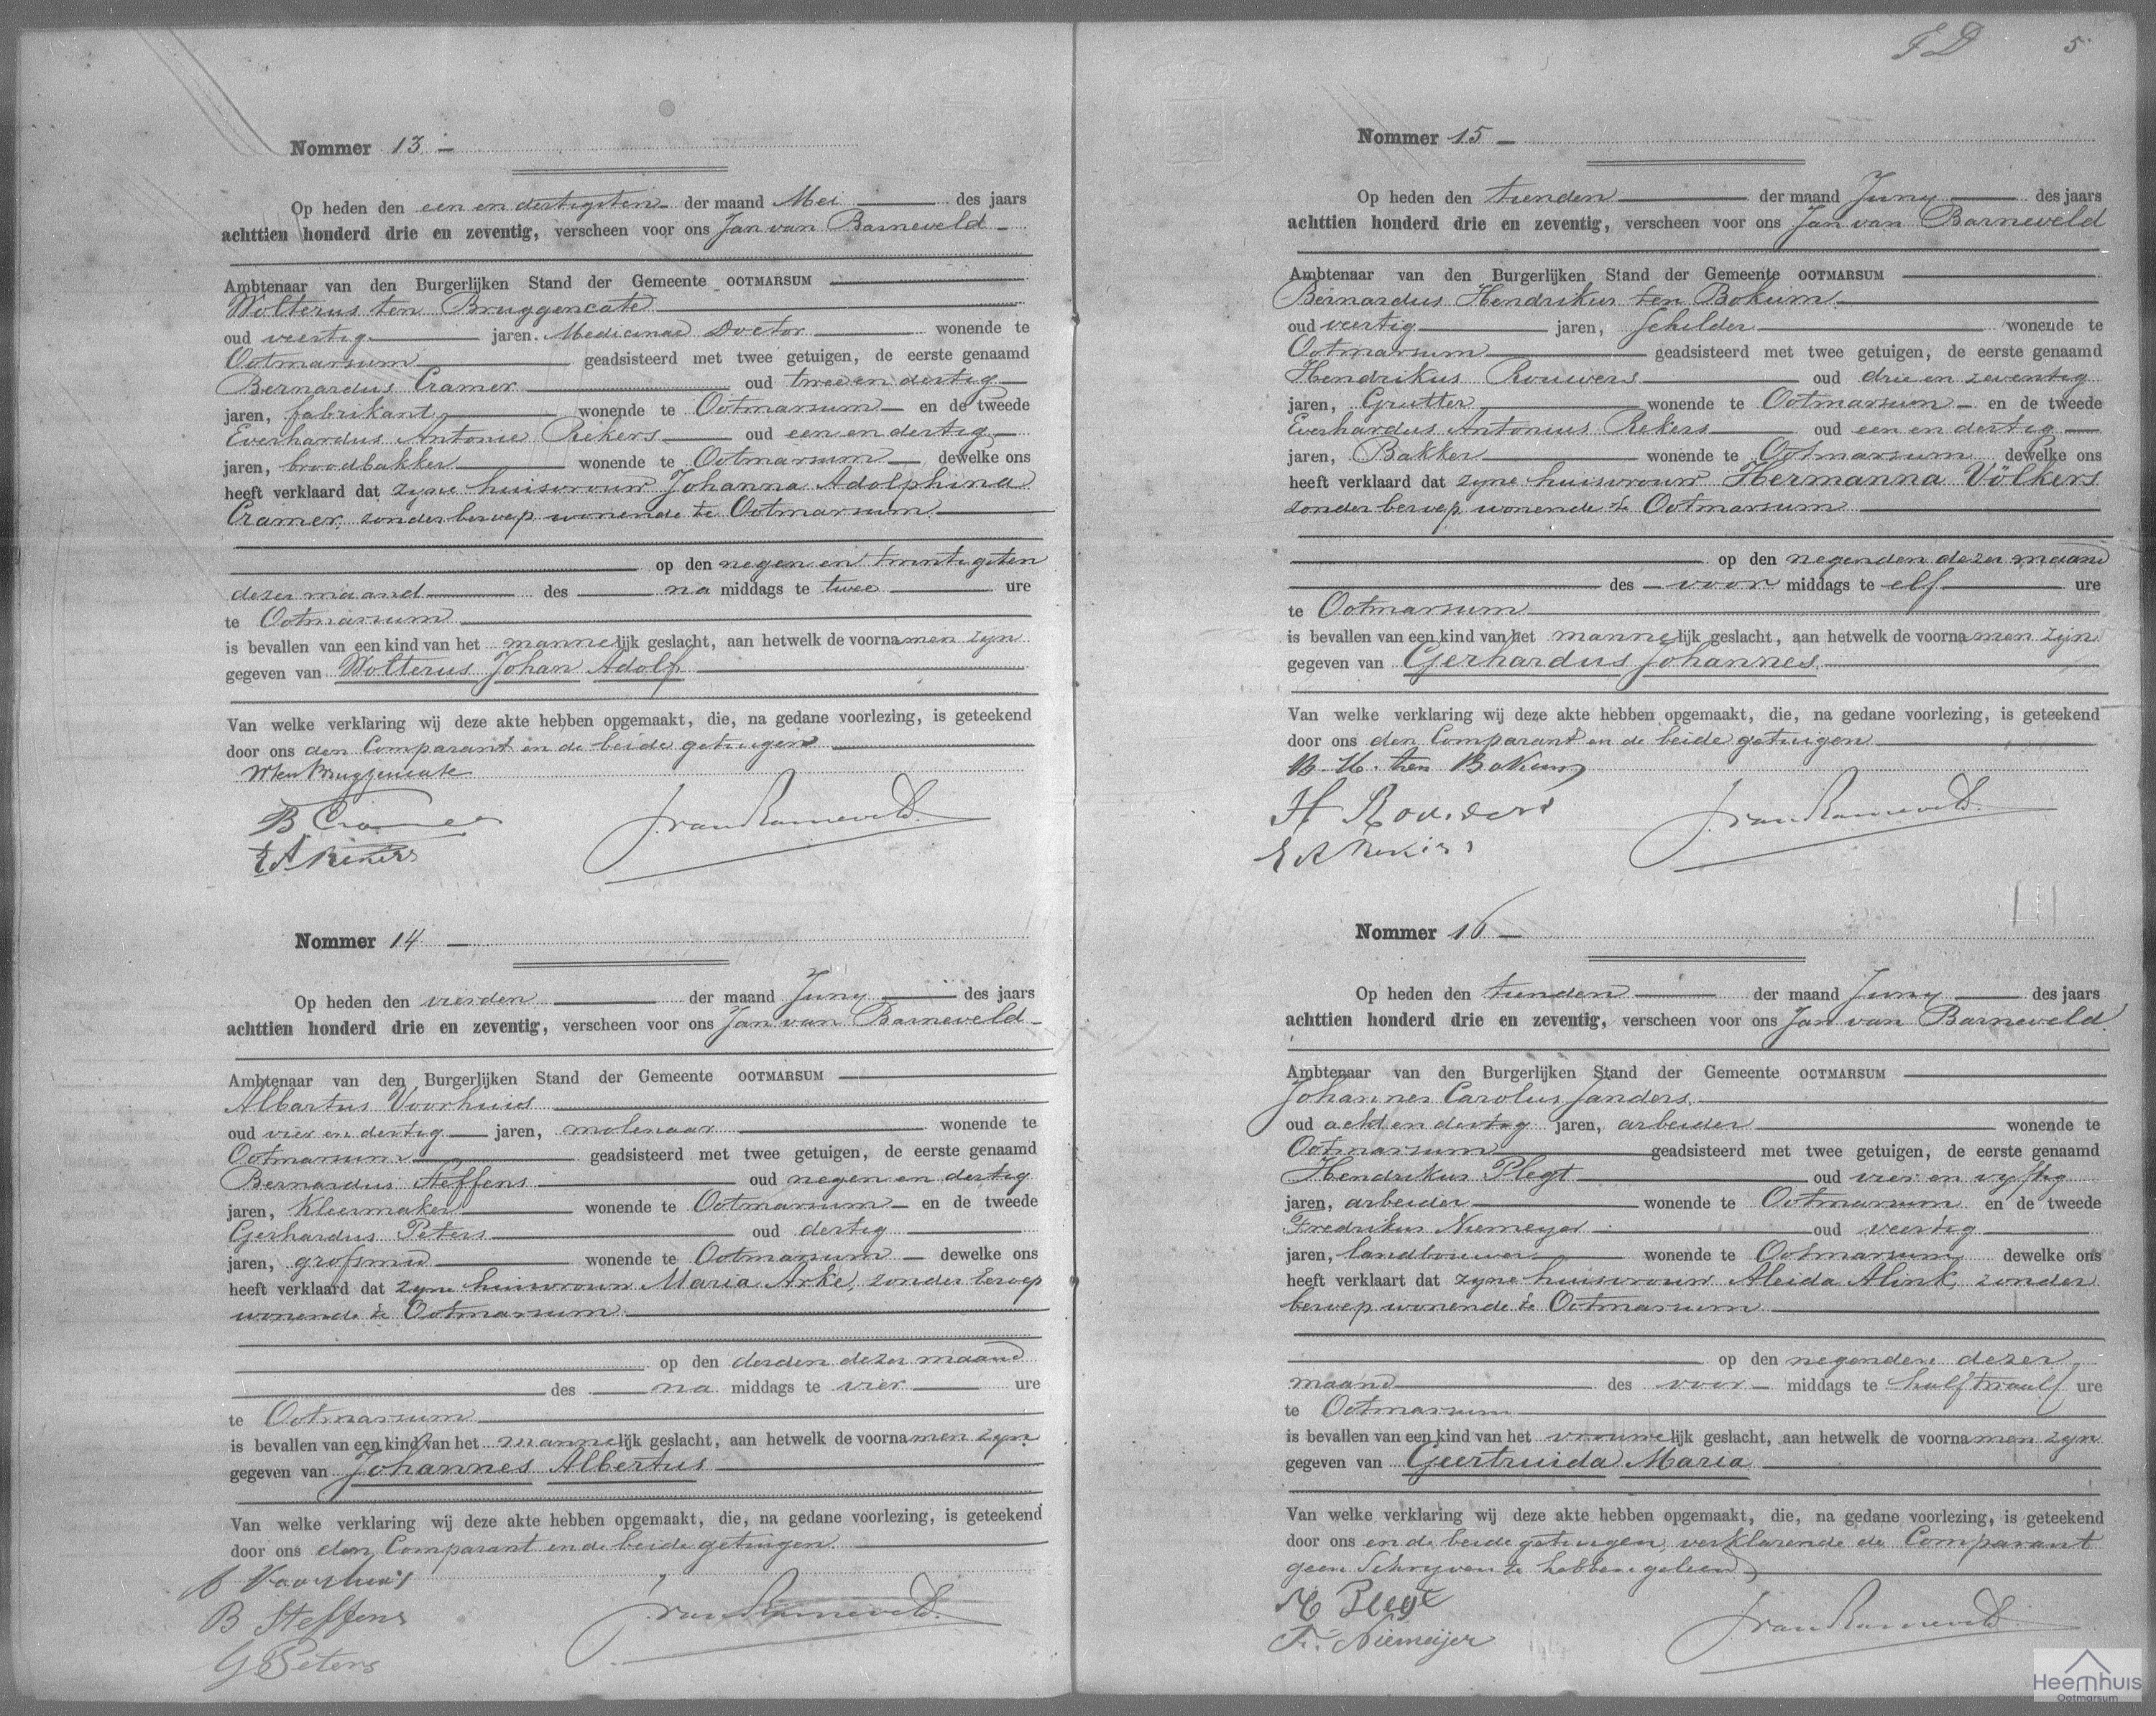 Nommer 13
Op heden den een en dertigsten der maand Mei des jaars
achttien honderd drie en zeventig, verscheen voor ons Jan van Barneveld
Ambtenaar van den Burgerlijken Stand der Gemeente OOTMARSUM
Wolterus ten Bruggencate
oud veertig jaren. Medicinae Doctor wonende te
Ootmarsum geadsisteerd met twee getuigen, de eerste genaamd
Bernardus Cramer oud twee en dertig
jaren, fabrikant wonende te Ootmarsum en de tweede
Everhardus Antonie Rekers oud een en dertig
jaren, broodbakker wonende te Ootmarsum dewelke ons
heeft verklaard dat zyne huisvrouw Johanna Adolphina
Cramer, zonder beroep wonende te Ootmarsum
op den negen en twintigsten
dezer maand des na middags te twee ure
te Ootmarsum
is bevallen van een kind van het mannelijk geslacht, aan hetwelk de voornamen zyn
gegeven van Wolterus Johan Adolf
Van welke verklaring wij deze akte hebben opgemaakt, die, na gedane voorlezing, is geteekend
door ons den Comparant en de beide getuigen
W ten Bruggencate
B Cramer
E A Rekers
J. van Barneveld.
Nommer 14
Op heden den vierden der maand Juny des jaars
achttien honderd drie en zeventig, verscheen voor ons Jan van Barneveld
Ambtenaar van den Burgerlijken Stand der Gemeente OOTMARSUM
Albartus Voorhuis
oud vier en dertig jaren, molenaar wonende te
Ootmarsum geadsisteerd met twee getuigen, de eerste genaamd
Bernardus Steffens oud negen en dertig
jaren, Kleermaker wonende te Ootmarsum en de tweede
Gerhardus Peters oud dertig
jaren, grofsmid wonende te Ootmarsum dewelke ons
heeft verklaard dat zyne huisvrouw Maria Arke, zonder beroep
wonende te Ootmarsum
op den derden dezer maand
des na middags te vier ure
te Ootmarsum
is bevallen van een kind van het mannelijk geslacht, aan hetwelk de voornamen zyn
gegeven van Johannes Albertus
Van welke verklaring wij deze akte hebben opgemaakt, die, na gedane voorlezing, is geteekend
door ons den Comparant en de beide getuigen
A Voorhuis
B Steffens
G Peters
J. van Barneveld.
5
Nommer 15
Op heden den tienden der maand Juny des jaars
achttien honderd drie en zeventig, verscheen voor ons Jan van Barneveld
Ambtenaar van den Burgerlijken Stand der Gemeente OOTMARSUM
Bernardus Hendrikus ten Bokum
oud veertig jaren, schilder wonende te
Ootmarsum geadsisteerd met twee getuigen, de eerste genaamd
Hendrikus Rouwers oud drie en zeventig
jaren, Grutter wonende te Ootmarsum en de tweede
Everhardus Antonius Rekers oud een en dertig
jaren, Bakker wonende te Ootmarsum dewelke ons
heeft verklaard dat zyne huisvrouw Hermanna Völkers
zonder beroep wonende te Ootmarsum
op den negenden dezer maand
des voor middags te elf ure
te Ootmarsum
is bevallen van een kind van het mannelijk geslacht, aan hetwelk de voornamen zyn
gegeven van Gerhardus Johannes
Van welke verklaring wij deze akte hebben opgemaakt, die, na gedane voorlezing, is geteekend
door ons den Comparant en de beide getuigen
B. H. ten Bokum
H Rouwers
E A Rekers
J. van Barneveld.
Nommer 16
Op heden den tienden der maand Juny des jaars
achttien honderd drie en zeventig, verscheen voor ons Jan van Barneveld
Ambtenaar van den Burgerlijken Stand der Gemeente OOTMARSUM
Johannes Carolus Sanders
oud acht en dertig jaren, arbeider wonende te
Ootmarsum geadsisteerd met twee getuigen, de eerste genaamd
Hendrikus Plegt oud vier en vyftig
jaren, arbeider wonende te Ootmarsum en de tweede
Fredrikus Niemeyer oud veertig
jaren, landbouwer wonende te Ootmarsum dewelke ons
heeft verklaart dat zyne huisvrouw Aleida Alink, zonder
beroep wonende te Ootmarsum
op den negenden dezer
maand des voor middags te half twaalf ure
te Ootmarsum
is bevallen van een kind van het vrouwelijk geslacht, aan hetwelk de voornamen zyn
gegeven van Geertruida Maria
Van welke verklaring wij deze akte hebben opgemaakt, die, na gedane voorlezing, is geteekend
door ons en de beide getuigen, verklarende de Comparant
geen Schryven te hebben geleerd
H Plegt
F. Niemeijer
J. van Barneveld
Heemhuis
Ootmarsum